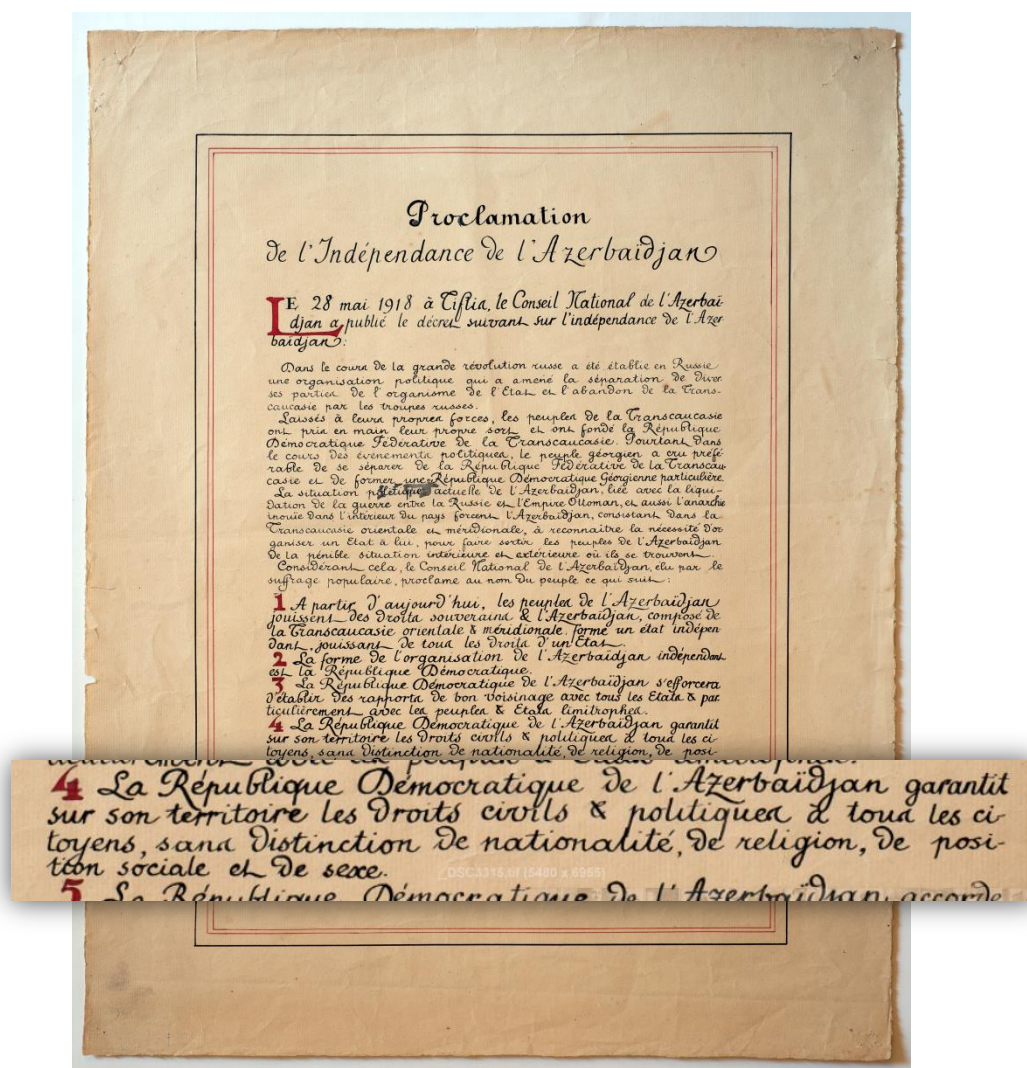 Proclamation
de l'Indépendance de l'Azerbaïdjan
LE 28 mai 1918 à Tiflis, le Conseil National de l'Azerbaï-
djan a publié le décret suivant sur l'indépendance de l'Azer-
baïdjan:
Dans le cours de la grande révolution russe a été établie en Russie
une organisation politique qui a amené la séparation de diver-
ses parties de l'organisme de l'Etat et l'abandon de la Trans-
caucasie par les troupes russes.
Laissés à leurs propres forces, les peuples de la Transcaucasie
ont pris en main leur propre sort et ont fondé la République
Démocratique Fédérative de la Transcaucasie. Pourtant dans
le cours des événements politiques, le peuple géorgien a cru préfé-
rable de se séparer de la République Fédérative de la Transcau-
casie et de former une République Démocratique Géorgienne particulière.
La situation politique actuelle de l'Azerbaïdjan, liée avec la liqui-
dation de la guerre entre la Russie et l'Empire Ottoman, et aussi l'anarchie
inouïe dans l'intérieur du pays forcent l'Azerbaïdjan, consistant dans la
Transcaucasie orientale et méridionale, à reconnaître la nécessité d'or-
ganiser un Etat à lui, pour faire sortir les peuples de l'Azerbaïdjan
de la pénible situation intérieure et extérieure où ils se trouvent.
Considérant cela, le Conseil National de l'Azerbaïdjan, élu par le
suffrage populaire, proclame au nom du peuple ce qui suit:
1 A partir d'aujourd'hui, les peuples de l'Azerbaïdjan
jouissent des droits souverains & l'Azerbaïdjan, composé de
la Transcaucasie orientale & méridionale forme un état indépen-
dant, jouissant de tous les droits d'un Etat.
2 La forme de l'organisation de l'Azerbaïdjan indépendant
est la République Démocratique.
3 La République Démocratique de l'Azerbaïdjan s'efforcera
d'établir des rapports de bon voisinage avec tous les Etats & par-
ticulièrement avec les peuples & Etats limitrophes.
4 La République Démocratique de l'Azerbaïdjan garantit
sur son territoire les droits civils & politiques à tous les ci-
toyens, sans distinction de nationalité, de religion, de posi-
4 La République Démocratique de l'Azerbaïdjan garantit
sur son territoire les droits civils & politiques à tous les ci-
toyens, sans distinction de nationalité, de religion, de posi-
tion sociale et de sexe.
_DSC3315.tif (5460 x 6955)
5 La République Démocratique de l'Azerbaïdjan accorde